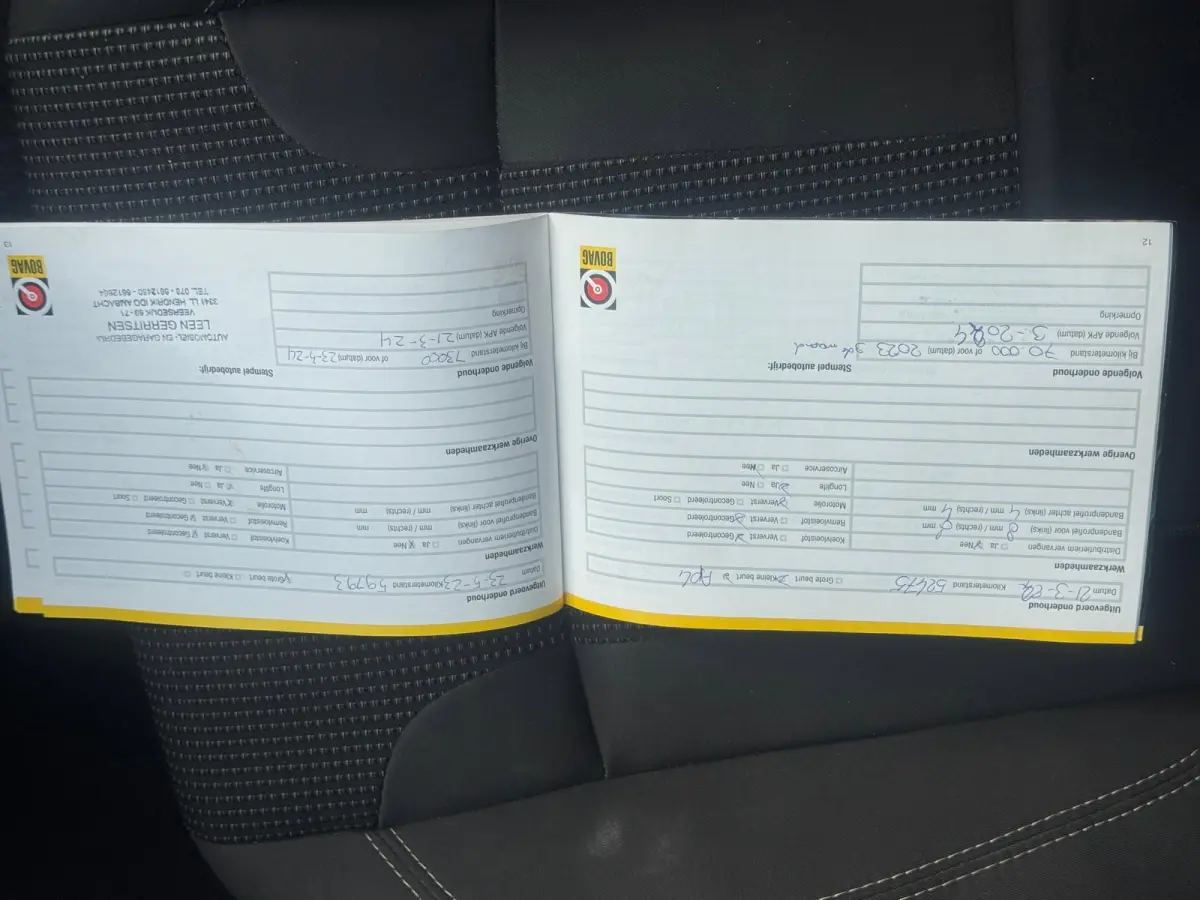 Uitgevoerd onderhoud
Datum 21-3-22 Kilometerstand 52475 Grote beurt Kleine beurt APK
Werkzaamheden
Distributieriem vervangen Ja Nee
Bandenprofiel voor (links) 8 mm / (rechts) 8 mm
Bandenprofiel achter (links) 4 mm / (rechts) 4 mm
Koelvloeistof Ververst Gecontroleerd
Remvloeistof Ververst Gecontroleerd
Motorolie Ververst Gecontroleerd Soort
Longlife Ja Nee
Aircoservice Ja Nee
Overige werkzaamheden
Volgende onderhoud
Stempel autobedrijf:
Bij kilometerstand 70 000 of voor (datum) 2023 3de maand
Volgende APK (datum) 3-2024
Opmerking
BOVAG
12
Uitgevoerd onderhoud
Datum 23-5-23 Kilometerstand 59793 Grote beurt Kleine beurt
Werkzaamheden
Distributieriem vervangen Ja Nee
Bandenprofiel voor (links) mm / (rechts) mm
Bandenprofiel achter (links) mm / (rechts) mm
Koelvloeistof Ververst Gecontroleerd
Remvloeistof Ververst Gecontroleerd
Motorolie Ververst Gecontroleerd Soort
Longlife Ja Nee
Aircoservice Ja Nee
Overige werkzaamheden
Volgende onderhoud
Stempel autobedrijf:
Bij kilometerstand 73000 of voor (datum) 23-5-24
Volgende APK (datum) 21-3-24
Opmerking
AUTOMOBIEL- EN GARAGEBEDRIJF
LEEN GERRITSEN
VEERSEDIJK 69-71
3341 LL HENDRIK IDO AMBACHT
TEL. 078 - 6812430 - 6812604
BOVAG
13